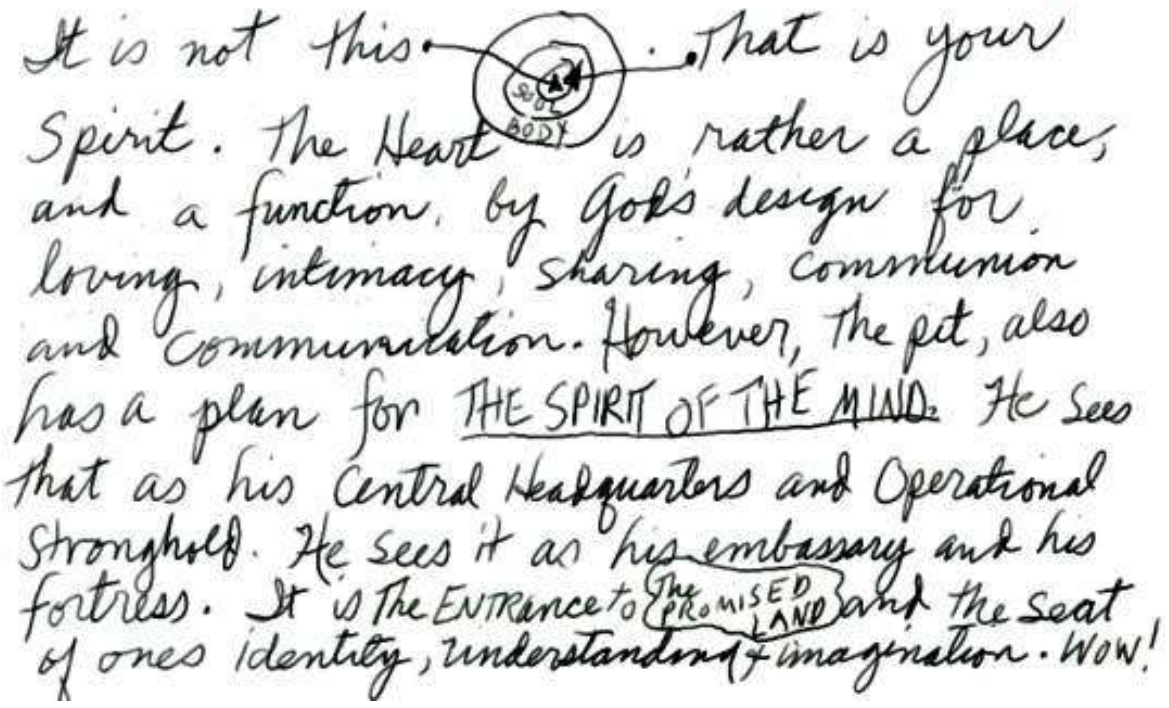 It is not this. . That is your
SOUL
BODY
Spirit. The Heart is rather a place,
and a function, by God's design for
loving, intimacy, sharing, communion
and communication. However, The pit, also
has a plan for THE SPIRIT OF THE MIND. He sees
that as his Central Headquarters and Operational
Stronghold. He sees it as his embassary and his
fortress. It is The ENTRANCE to The PROMISED LAND and the seat
of ones identity, understanding + imagination. WOW!